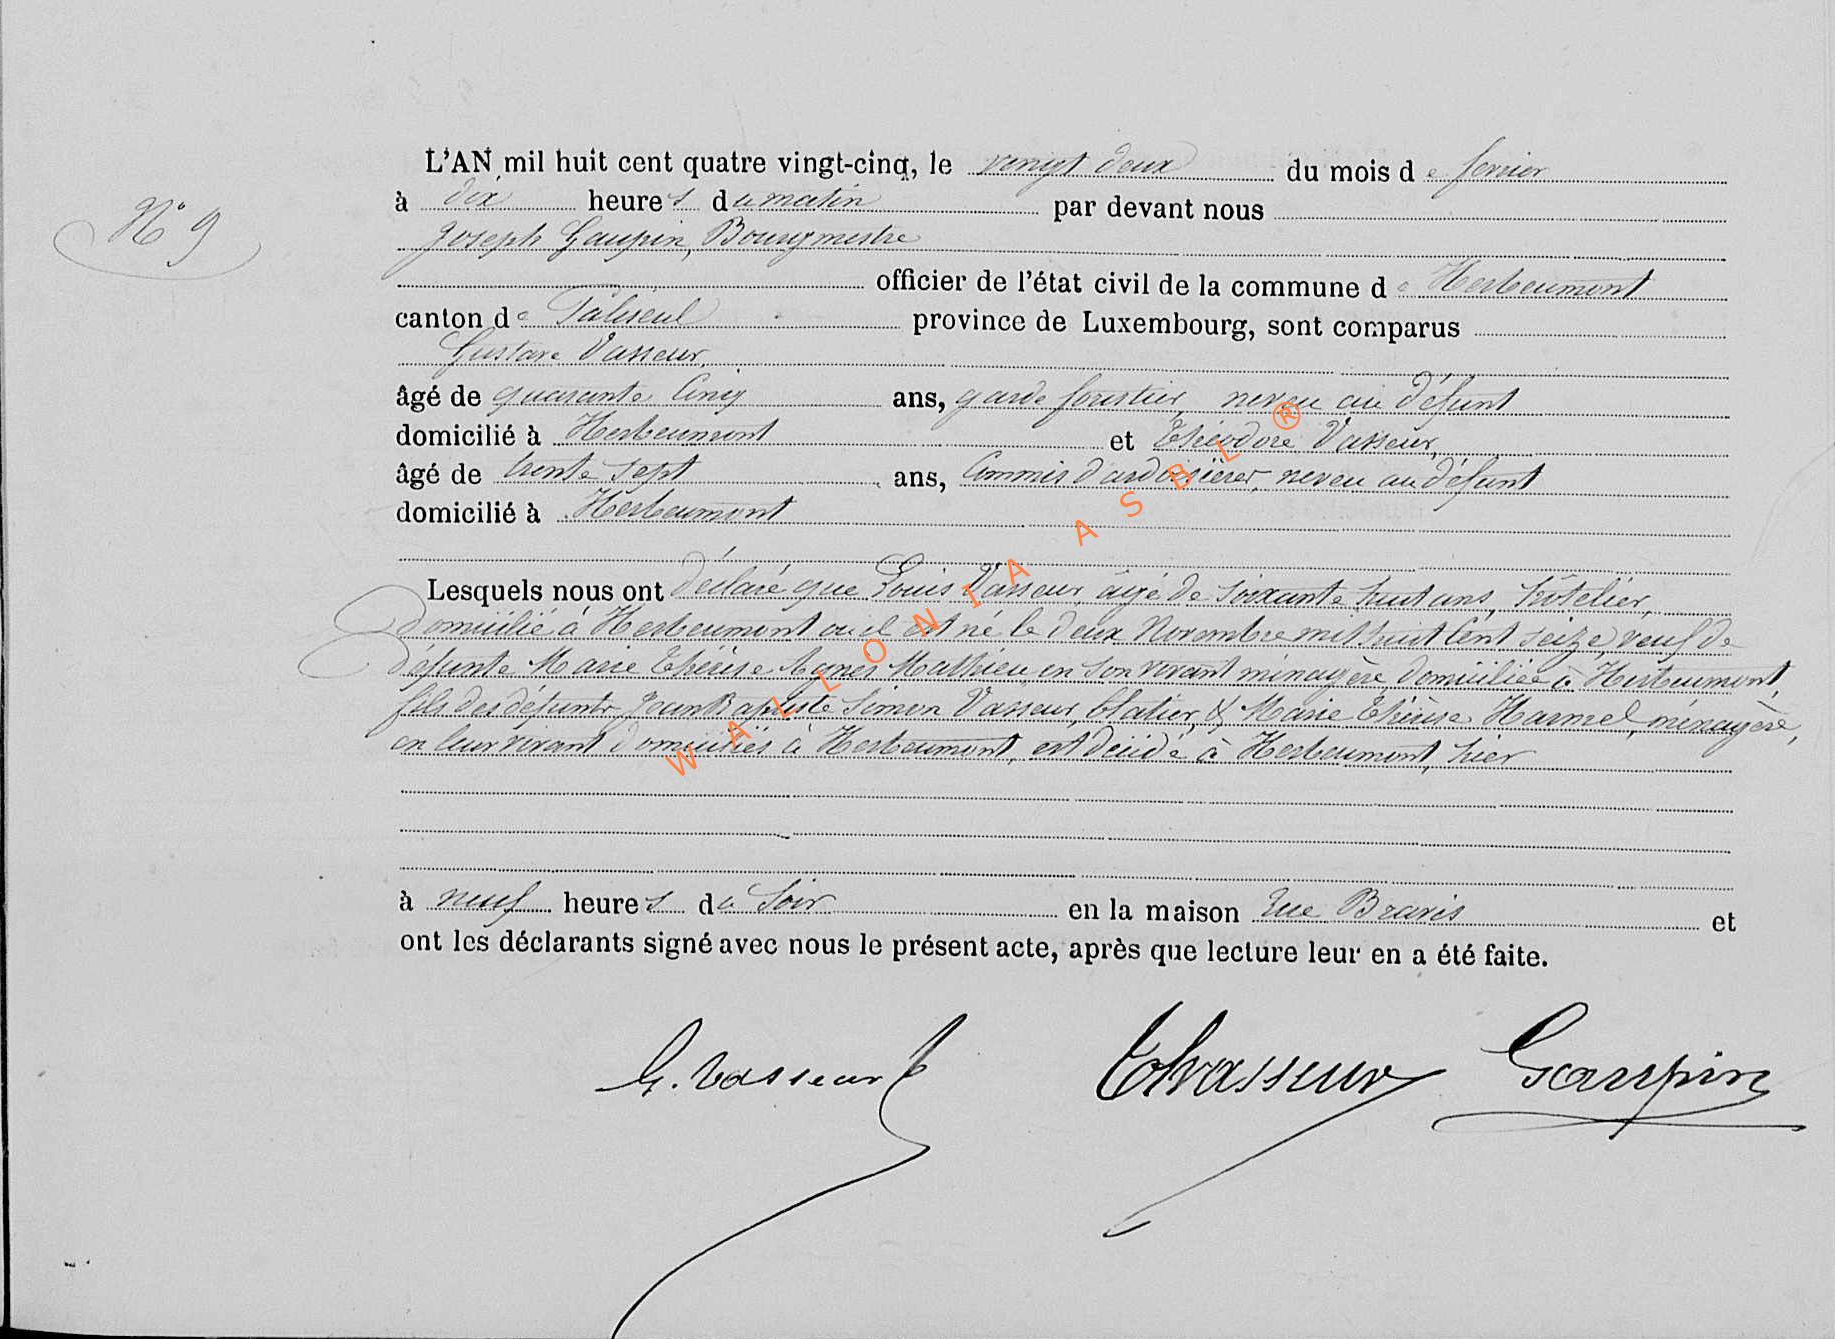 L'AN mil huit cent quatre vingt-cinq, le vingt deux du mois de fevrier
N° 9
à dix heures du matin par devant nous
Joseph Gaupin, Bourgmestre
officier de l'état civil de la commune de Herbeumont
canton de Paliseul province de Luxembourg, sont comparus
Gustave Vasseur,
âgé de quarante cinq ans, garde forestier, neveu au défunt
domicilié à Herbeumont et Théodore Vasseur,
âgé de trente sept ans, Commis d'ardoisières, neveu au défunt
domicilié à Herbeumont
Lesquels nous ont déclaré que Louis Vasseur, âgé de soixante huit ans, hôtelier,
domicilié à Herbeumont où il est né le deux Novembre mil huit cent seize, veuf de
défunte Marie Thérèse Agnès Mathieu en son vivant ménagère, domiciliée à Herbeumont,
fils des défunts Jean Baptiste Simon Vasseur, & Marie Thérèse Harmel, ménagère,
en leur vivant domiciliés à Herbeumont, est décédé à Herbeumont, hier
à neuf heures du Soir en la maison rue et
ont les déclarants signé avec nous le présent acte, après que lecture leur en a été faite.
G. Vasseur Th Vasseur Gaupin
WALLONIA ASBL ®